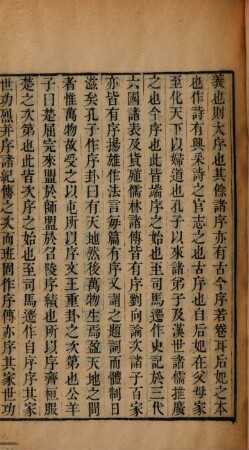 義也則大序也其餘諸序亦有古今序若卷耳后妃之本
也作詩有興采詩之官志之也古序也自后妃在父母家
至化天下以婦道也孔子以來諸弟子及漢世諸儒推廣
之也今序也此皆端序之始也至司馬遷作史記於三代
六國諸表及貨殖儒林諸傳皆有序劉向論次諸子百家
亦皆有序揚雄作法言每篇有序又謂之題詞而體制日
滋矣孔子作序卦曰有天地然後萬物生焉盈天地之間
者惟萬物故受之以屯所以序文王重卦之次第也公羊
子曰是屈完來盟於師盟於召陵序績也所以序齊桓服
楚之次第也此皆次序之始也至司馬遷作自序序其家
世功烈并序諸紀傳之次而班固作序傳亦序其家世功